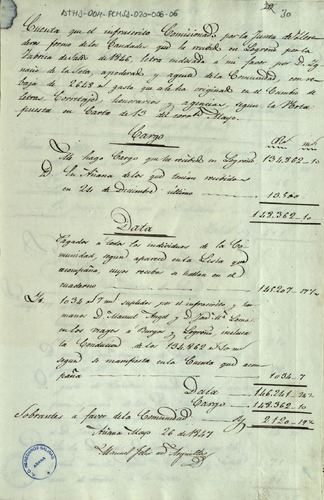 ATHJ-004-FCHSJ-020-006-06
30
Cuenta que el infrascrito Comisionado por la Junta de
forma de los Caudales que he recibido en Logroño por la
Fabrica de Salt de 1846, letra endosada a mi favor por D. Ig-
nacio de la Sota, apoderado y agente de la Comunidad, con re-
baja de 2628 gasto que a la ha originado en el Cambio de
letras Corretage, honorarios y agencias, segun la Nota
puesta en Carta de 13 del corrte Mayo.
Cargo
Me hago Cargo que he recibido en Logroño 134.862-10
D. En Añana de los que tenian recibidos
en 24 de Diciembre ultimo 13.500
148.362-10
Data
Pagados a todos los individuos de la Co-
munidad, segun aparece en la Lista que
acompaña, cuyos recibos se hallan en el
cuaderno 145207-17½
Yt. 1034 r 7 ms suplidos por el infrascrito y her-
mano D. Manuel Angel y D. José Mª
en los viages a Burgos y Logroño inclusa
la Conducion de los 134.862 r 10 ms
segun se manifiesta en la Cuenta que acom-
paña 1034-7
Data 146.241-24½
Cargo 148.362-10
Sobrantes a favor de la Comunidad 2.120-19½
Añana Mayo 26 de 1847
Manuel
AÑANA